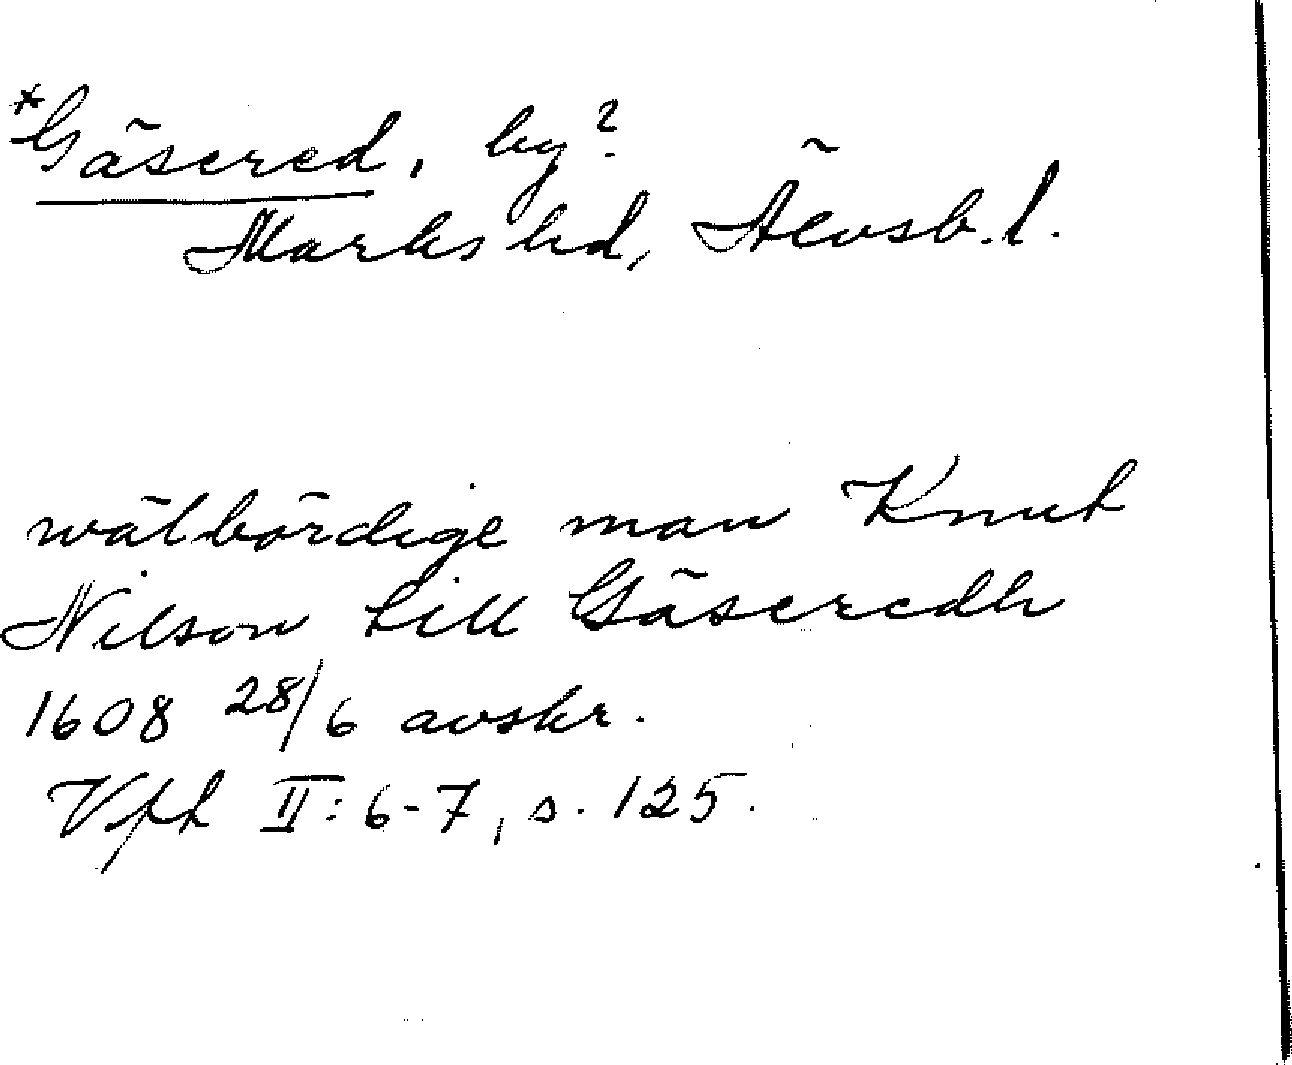 *Gäsered, by?
Marks hd, Älvsb. l.
wälbördige man Knut
Nilson till Gäseredh
1608 28/6 avskr.
Vfh II: 6-7, s. 125.